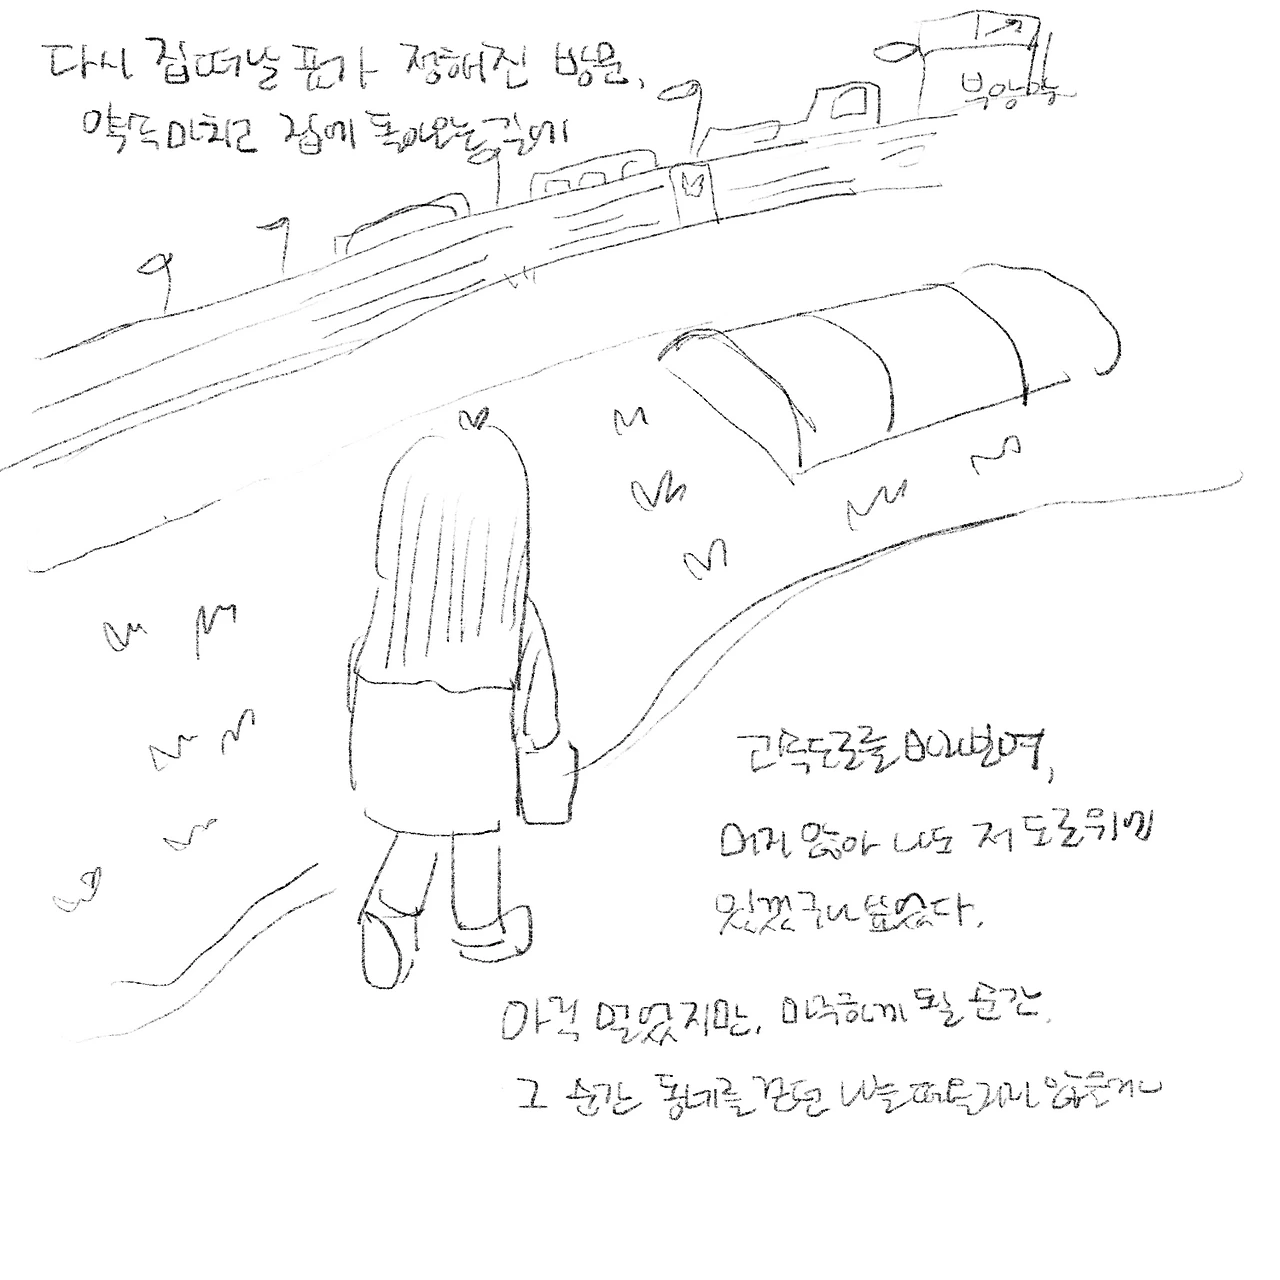 다시 집떠날 표가 정해진 방문,
약속 마치고 집에 돌아오는 길에
고속도로를 바라보며,
머지 않아 나도 저 도로위에
있겠구나 싶었다.
아직 멀었지만, 마주하게 될 순간.
그 순간 동네를 걷던 나를 떠올리지 않을거